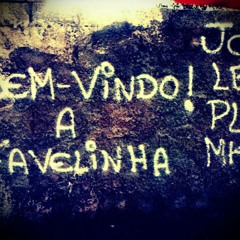 EM-VINDO!
A
AVELINHA
JO
LE
PL
MK